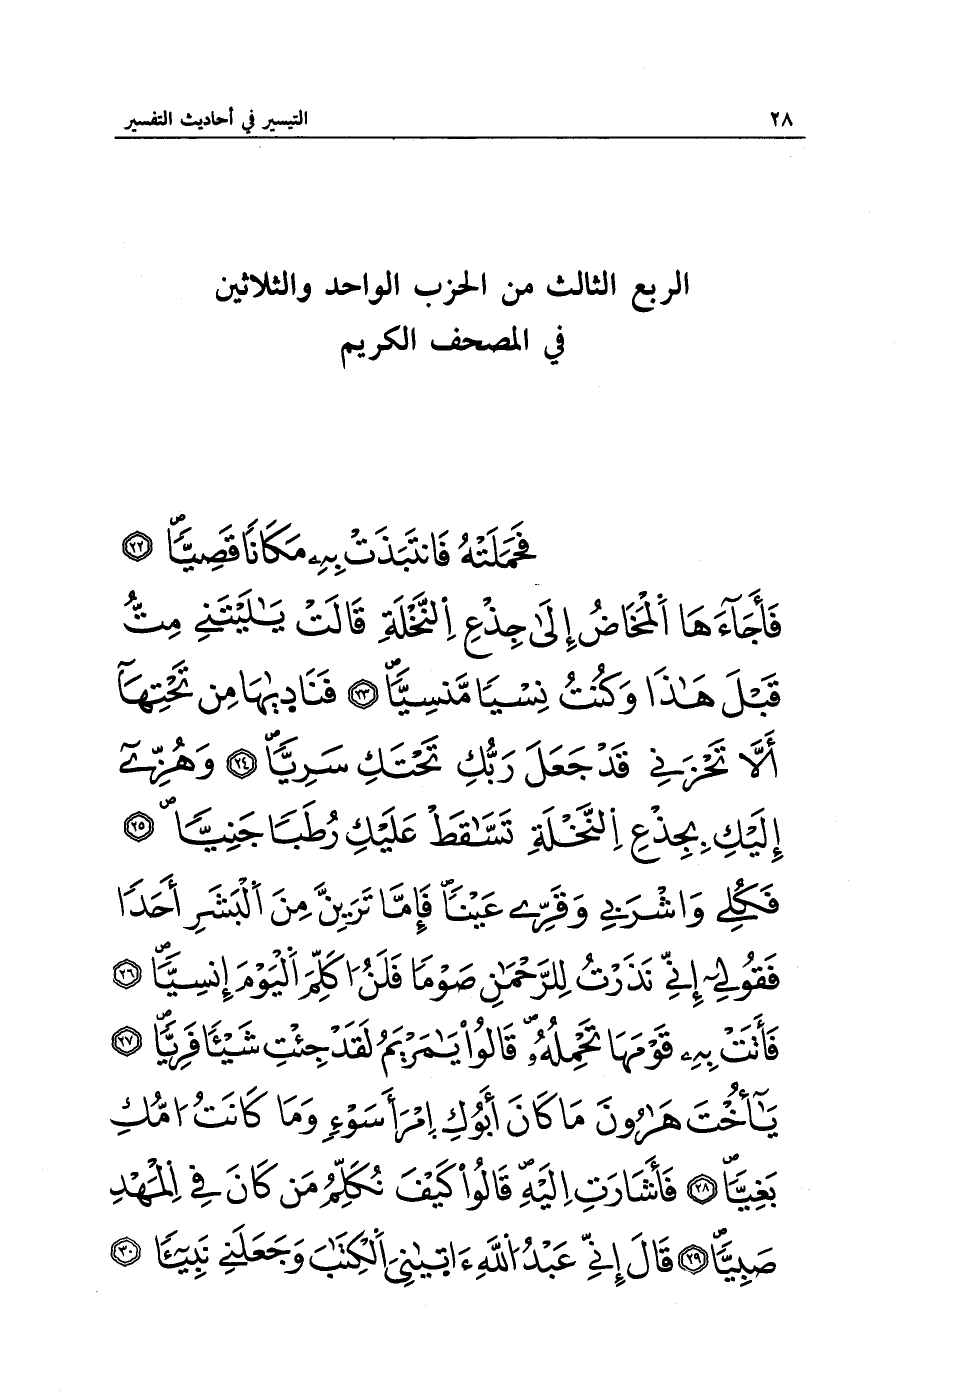 ٢٨ التيسير في أحاديث التفسير
الربع الثالث من الحزب الواحد والثلاثين
في المصحف الكريم
فَحَمَلَتْهُ فَانتَبَذَتْ بِهِۦ مَكَانٗا قَصِيّٗاۖ ٢٢
فَأَجَآءَهَا اَ۬لْمَخَاضُ إِلَىٰ جِذْعِ اِ۬لنَّخْلَةِ قَالَتْ يَٰلَيْتَنِے مِتُّ
قَبْلَ هَٰذَا وَكُنتُ نِسْيٗا مَّنسِيّٗاۖ ٢٣ فَنَادِىٰهَا مِن تَحْتِهَآ
أَلَّا تَحْزَنِے قَدْ جَعَلَ رَبُّكِ تَحْتَكِ سَرِيّٗاۖ ٢٤ وَهُزِّےٓ
إِلَيْكِ بِجِذْعِ اِ۬لنَّخْلَةِ تَسَّٰقَطْ عَلَيْكِ رُطَبٗا جَنِيّٗاۖ ٢٥
فَكُلِے وَاشْرَبِے وَقَرِّے عَيْنٗاۖ فَإِمَّا تَرَيِنَّ مِنَ اَ۬لْبَشَرِ أَحَدٗا
فَقُولِےٓ إِنِّے نَذَرْتُ لِلرَّحْمَٰنِ صَوْمٗا فَلَنُ ا۟كَلِّمَ اَ۬لْيَوْمَ إِنسِيّٗاۖ ٢٦
فَأَتَتْ بِهِۦ قَوْمَهَا تَحْمِلُهُۥۖ قَالُواْ يَٰمَرْيَمُ لَقَدْ جِئْتِ شَيْـٔٗا فَرِيّٗاۖ ٢٧
يَٰٓأُخْتَ هَٰرُونَ مَا كَانَ أَبُوكِ اِ۪مْرَأَ سَوْءٖ وَمَا كَانَتُ ا۟مُّكِ
بَغِيّٗاۖ ٢٨ فَأَشَارَتِ اِلَيْهِۖ قَالُواْ كَيْفَ نُكَلِّمُ مَن كَانَ فِے اِ۬لْمَهْدِ
صَبِيّٗاۖ ٢٩ قَالَ إِنِّے عَبْدُ اُ۬للَّهِ ءَاتِىٰنِيَ اَ۬لْكِتَٰبَ وَجَعَلَنِے نَبِيٓـٔٗا ٣٠